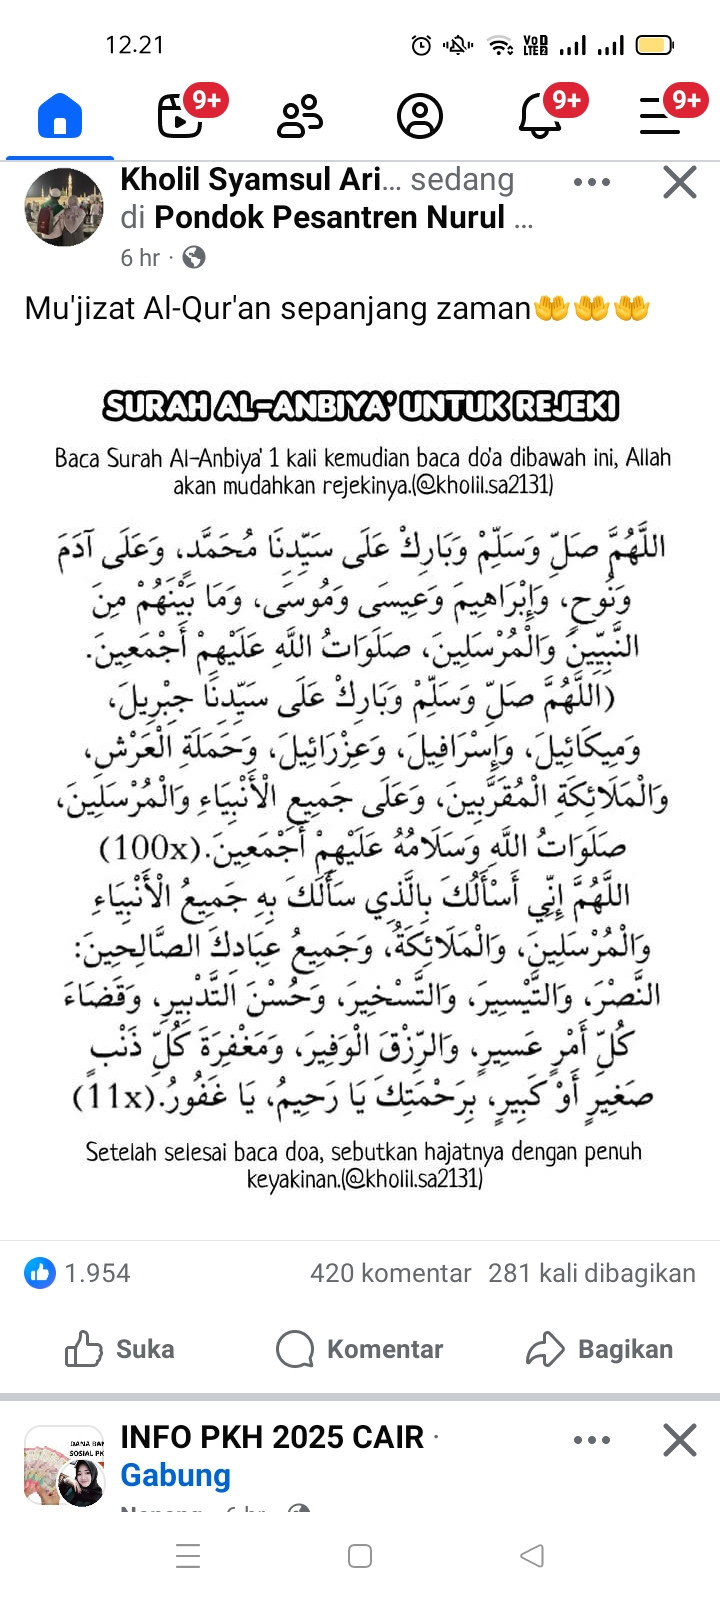 12.21
VoD
LTE2
9+
9+
9+
Kholil Syamsul Ari... sedang
di Pondok Pesantren Nurul ...
6 hr ·
Mu'jizat Al-Qur'an sepanjang zaman🤲🤲🤲
SURAH AL-ANBIYA' UNTUK REJEKI
Baca Surah Al-Anbiya' 1 kali kemudian baca do'a dibawah ini, Allah
akan mudahkan rejekinya.(@kholil.sa2131)
اللَّهُمَّ صَلِّ وَسَلِّمْ وَبَارِكْ عَلَى سَيِّدِنَا مُحَمَّدٍ، وَعَلَى آدَمَ
وَنُوحٍ، وَإِبْرَاهِيمَ وَعِيسَى وَمُوسَى، وَمَا بَيْنَهُمْ مِنَ
النَّبِيِّينَ وَالْمُرْسَلِينَ، صَلَوَاتُ اللَّهِ عَلَيْهِمْ أَجْمَعِينَ.
(اللَّهُمَّ صَلِّ وَسَلِّمْ وَبَارِكْ عَلَى سَيِّدِنَا جِبْرِيلَ،
وَمِيكَائِيلَ، وَإِسْرَافِيلَ، وَعِزْرَائِيلَ، وَحَمَلَةِ الْعَرْشِ،
وَالْمَلَائِكَةِ الْمُقَرَّبِينَ، وَعَلَى جَمِيعِ الْأَنْبِيَاءِ وَالْمُرْسَلِينَ،
صَلَوَاتُ اللَّهِ وَسَلَامُهُ عَلَيْهِمْ أَجْمَعِينَ.(100x)
اللَّهُمَّ إِنِّي أَسْأَلُكَ بِالَّذِي سَأَلَكَ بِهِ جَمِيعُ الْأَنْبِيَاءِ
وَالْمُرْسَلِينَ، وَالْمَلَائِكَةُ، وَجَمِيعُ عِبَادِكَ الصَّالِحِينَ:
النَّصْرَ، وَالتَّيْسِيرَ، وَالتَّسْخِيرَ، وَحُسْنَ التَّدْبِيرِ، وَقَضَاءَ
كُلِّ أَمْرٍ عَسِيرٍ، وَالرِّزْقَ الْوَفِيرَ، وَمَغْفِرَةَ كُلِّ ذَنْبٍ
صَغِيرٍ أَوْ كَبِيرٍ، بِرَحْمَتِكَ يَا رَحِيمُ، يَا غَفُورُ.(11x)
Setelah selesai baca doa, sebutkan hajatnya dengan penuh
keyakinan.(@kholil.sa2131)
1.954
420 komentar 281 kali dibagikan
Suka
Komentar
Bagikan
DANA BAN
SOSIAL PK
INFO PKH 2025 CAIR ·
Gabung